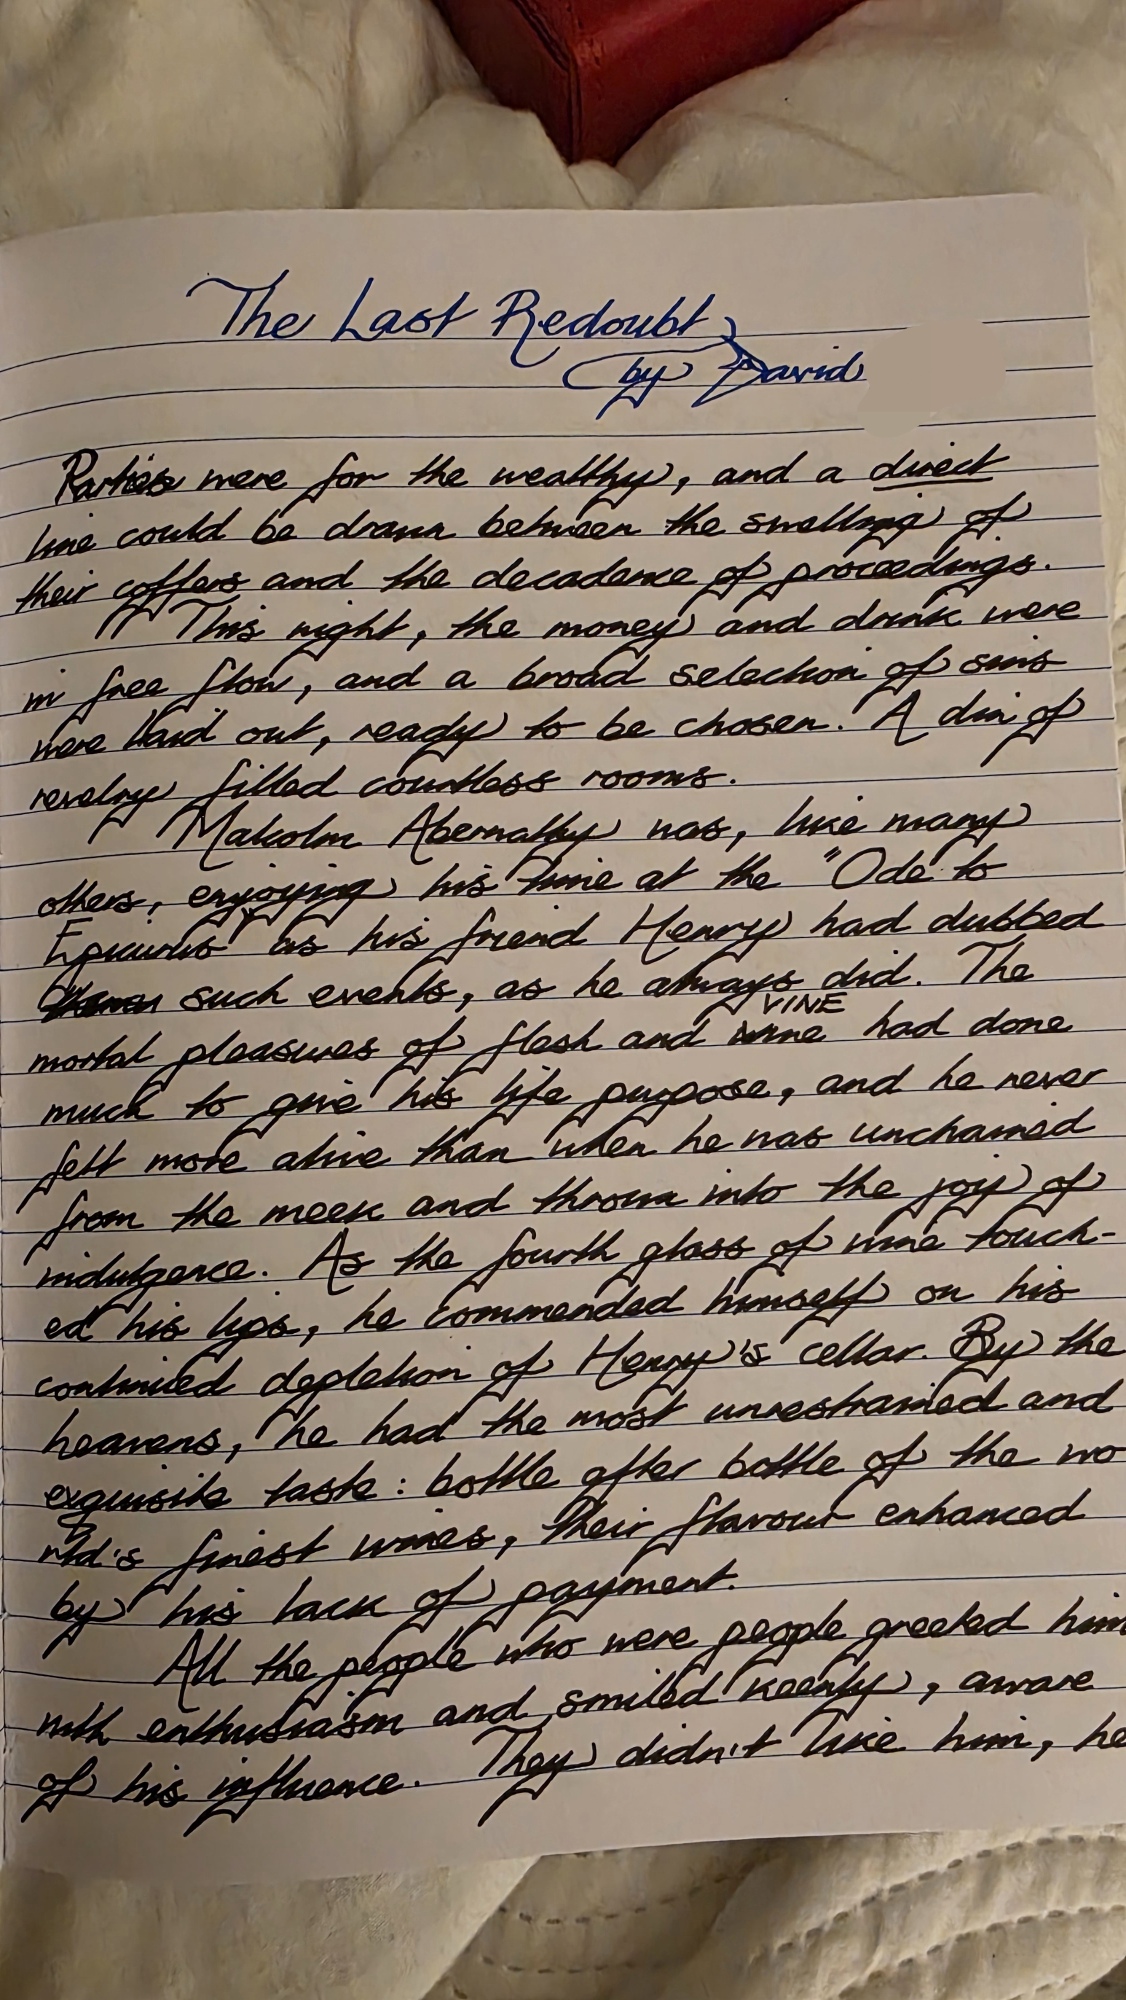 The Last Redoubt
by David
Parties were for the wealthy, and a direct
line could be drawn between the swelling of
their coffers and the decadence of proceedings.
This night, the money and drink were
in free flow, and a broad selection of sins
were laid out, ready to be chosen. A din of
revelry filled countless rooms.
Malcolm Abernathy was, like many
others, enjoying his time at the "Ode to
Epicurus" as his friend Henry had dubbed
such events, as he always did. The
VINE
mortal pleasures of flesh and wine had done
much to give his life purpose, and he never
felt more alive than when he was unchained
from the meek and thrown into the joy of
indulgence. As the fourth glass of wine touch-
ed his lips, he commended himself on his
continued depletion of Henry's cellar. By the
heavens, he had the most unrestrained and
exquisite taste: bottle after bottle of the wo
rld's finest wines, their flavour enhanced
by his lack of payment.
All the people who were people greeted him
with enthusiasm and smiled keenly, aware
of his influence. They didn't like him, he